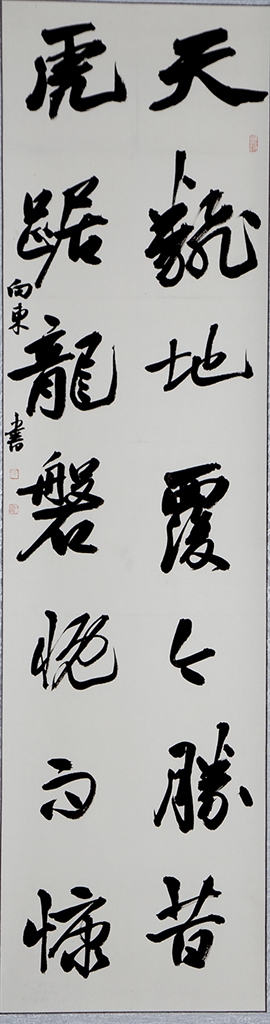 天飜地覆今勝昔
虎踞龍磐慨而慷
向東 書